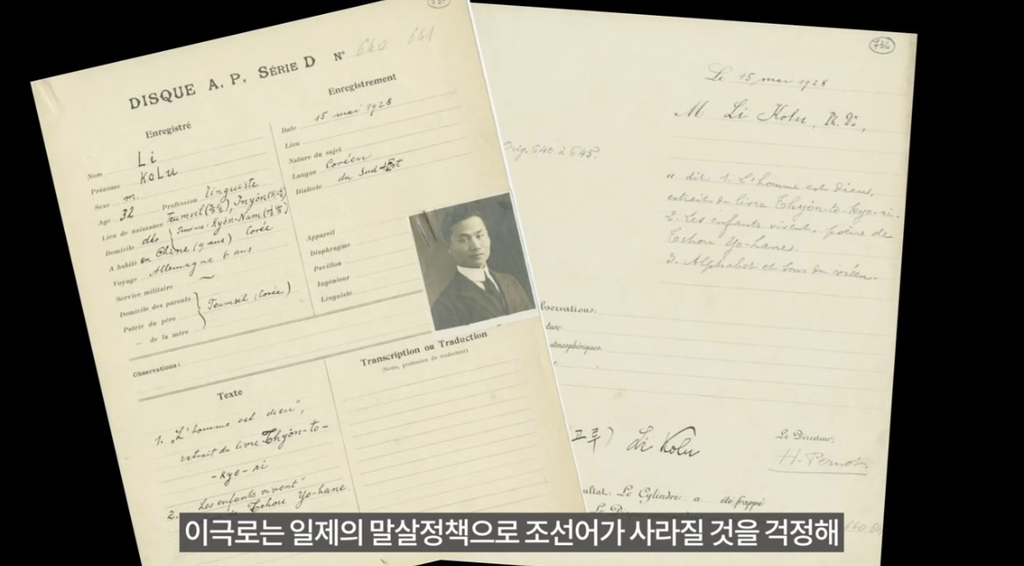 DISQUE A. P. SÉRIE D N° 640 641
Enregistré
Nom Li
Prénoms Kolu
Sexe m.
Age 32 Profession linguiste
Lieu de naissance
Domicile
A habité en Chine (9 ans) Corée
Voyagé Allemagne 6 ans
Service militaire
Domicile des parents
Patrie du père
— de la mère
Observations :
Enregistrement
Date 15 mai 1928
Lieu
Nature du sujet
Langue Coréen
Dialecte du Sud-Est
Appareil
Diaphragme
Pavillon
Ingénieur
Linguiste
Texte
1. "L'homme est dieu",
extrait du livre Thyòn-to-
-kyo-ri
2. Les enfants vivent"
Tchou Yo-hane
Transcription ou Traduction
(Noms, profession du traducteur)
736
Le 15 mai 1928
M Li Kolu, Ph. Do,
Orig. 640 à 645.
a dit 1. L'homme est dieu,
extrait du livre Thyòn-to-kyo-ri.
2. Les enfants vivent, poème de
Tchou Yo-hane.
3. Alphabet et sons du coréen.
Li Kolu
Le Directeur:
H. Pernot
Le Cylindre a été frappé
이극로는 일제의 말살정책으로 조선어가 사라질 것을 걱정해